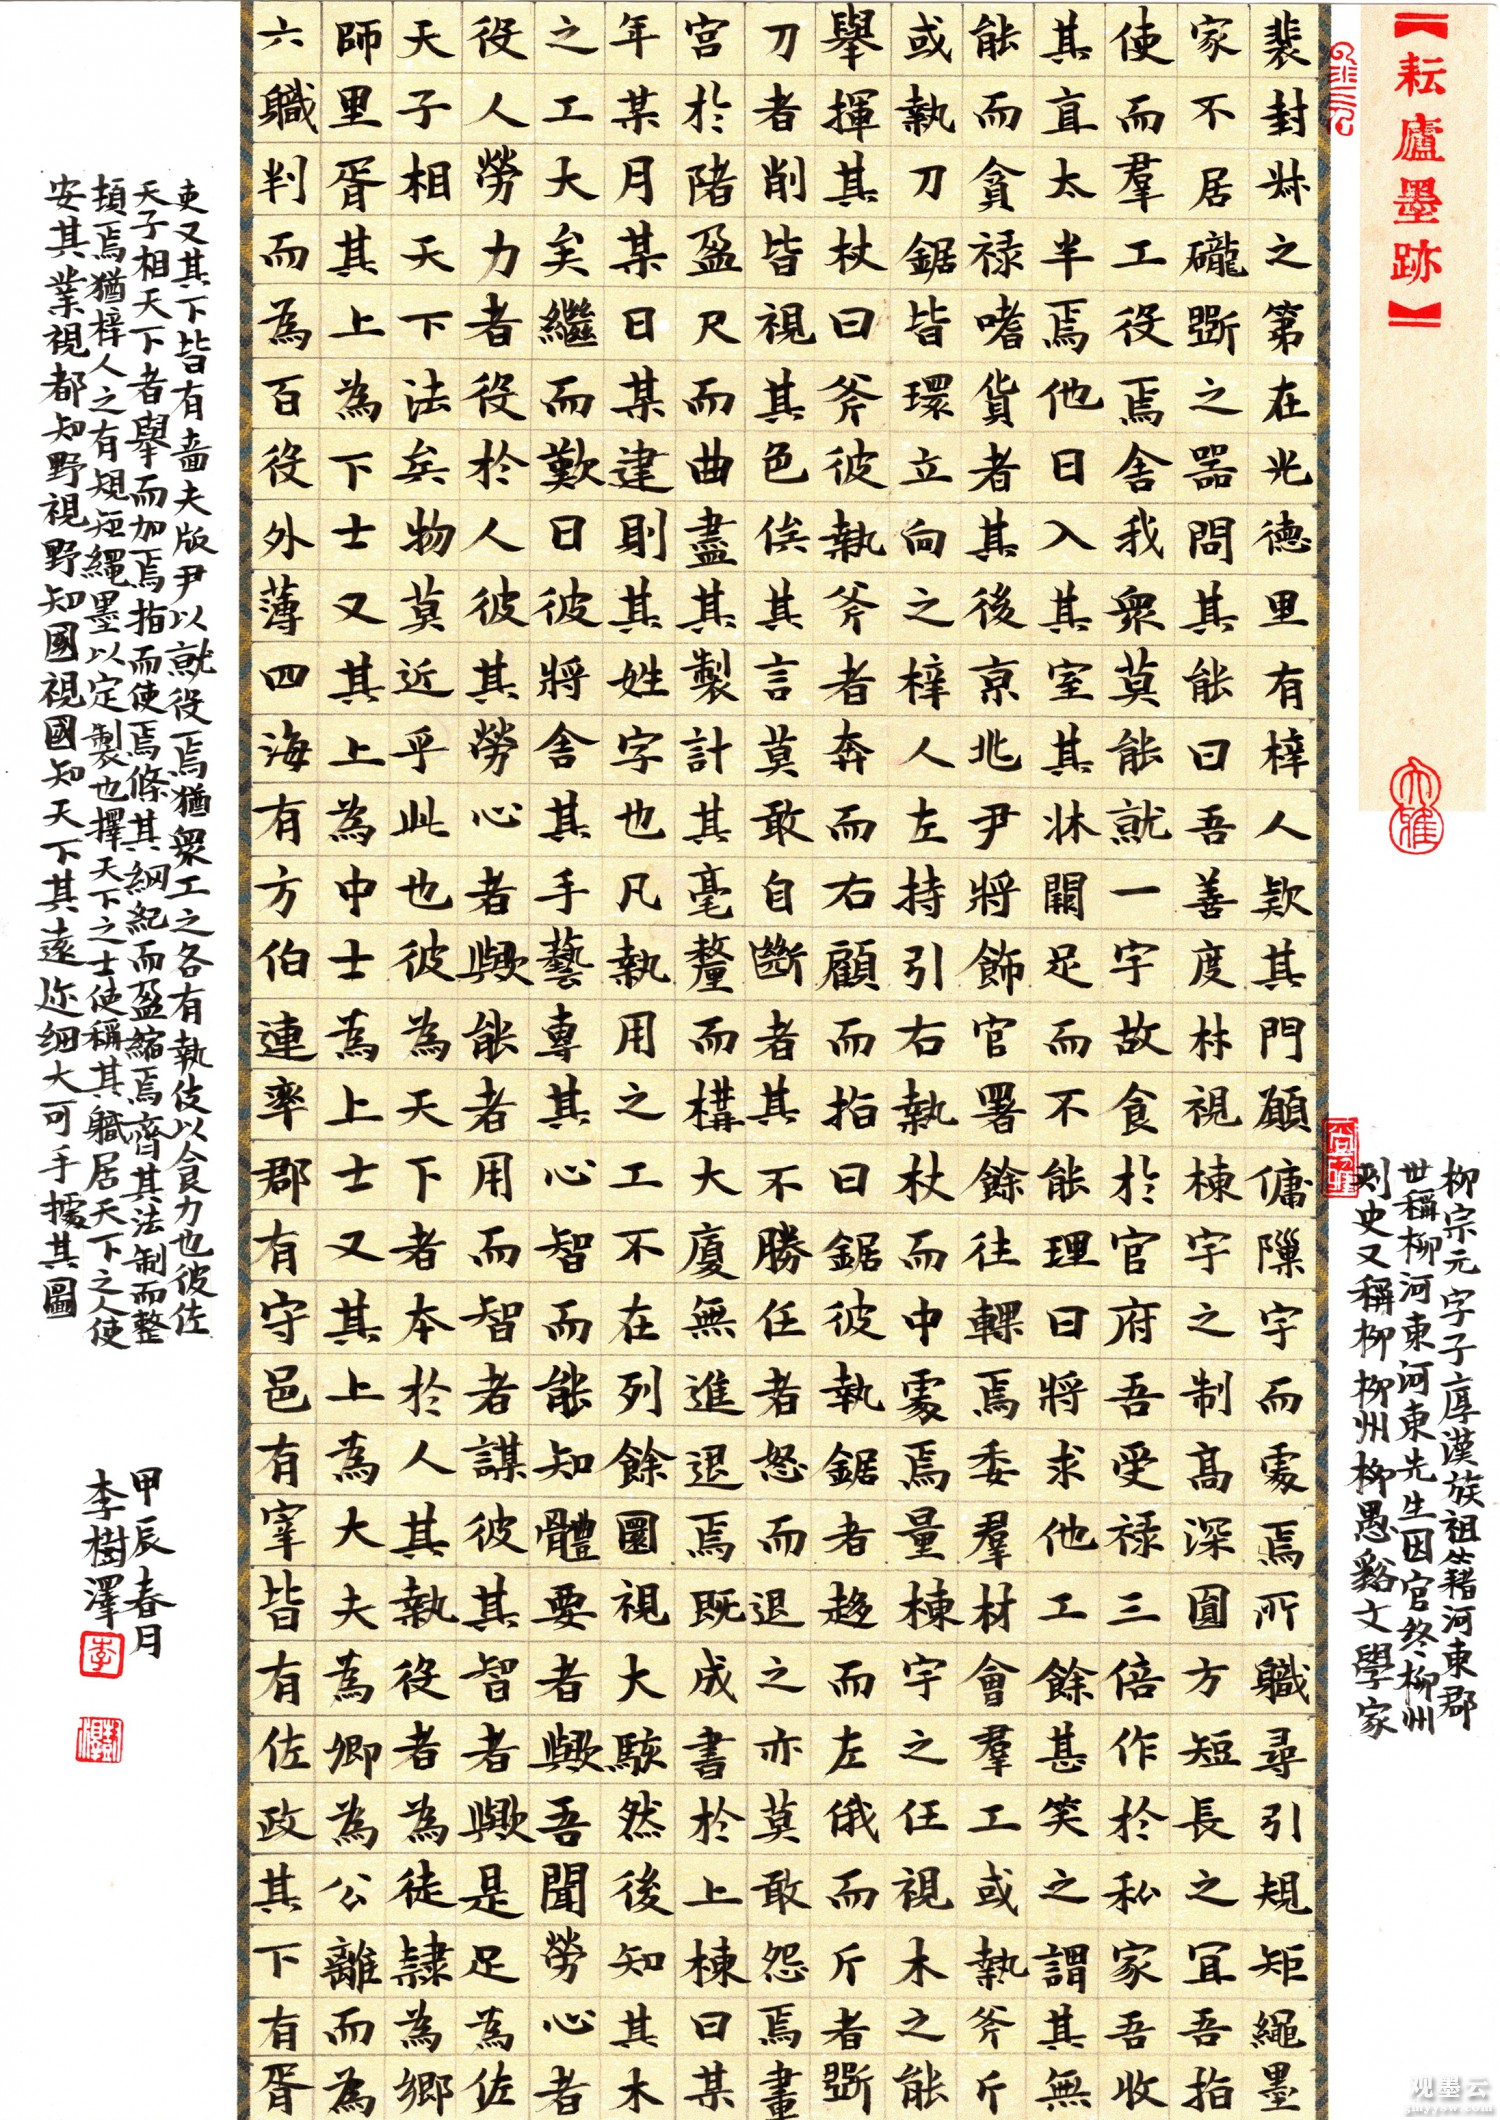 【耘廬墨跡】
柳宗元字子厚漢族祖籍河東郡
世稱柳河東河東先生因官終柳州
刺史又稱柳柳州柳愚谿文學家
裴封叔之第在光德里有梓人款其門願傭隟宇而處焉所職尋引規矩繩墨
家不居礲斲之器問其能曰吾善度材視棟宇之制高深圓方短長之宜吾指
使而羣工役焉舍我眾莫能就一宇故食於官府吾受禄三倍作於私家吾收
其直太半焉他日入其室其牀闕足而不能理曰將求他工餘甚笑之謂其無
能而貪禄嗜貨者其後京兆尹將飾官署餘往輠焉委羣材會羣工或執斧斤
或執刀鋸皆環立向之梓人左持引右執杖而中處焉量棟宇之任視木之能
舉揮其杖曰斧彼執斧者奔而右顧而指曰鋸彼執鋸者趨而左俄而斤者斲
刀者削皆視其色俟其言莫敢自斷者其不勝任者怒而退之亦莫敢怨焉畫
宮於堵盈尺而曲盡其製計其毫釐而構大廈無進退焉既成書於上棟曰某
年某月某日某建則其姓字也凡執用之工不在列餘圜視大駭然後知其木
之工大矣繼而歎曰彼將舍其手藝專其心智而能知體要者歟吾聞勞心者
役人勞力者役於人彼其勞心者歟能者用而智者謀彼其智者歟是足為佐
天子相天下法矣物莫近乎此也彼為天下者本於人其執役者為徒隸為鄉
師里胥其上為下士又其上為中士為上士又其上為大夫為卿為公離而為
六職判而為百役外薄四海有方伯連率郡有守邑有宰皆有佐政其下有胥
吏又其下皆有嗇夫版尹以就役焉猶眾工之各有執伎以食力也彼佐
天子相天下者舉而加焉指而使焉條其綱紀而盈縮焉齊其法制而整
頓焉猶梓人之有規矩繩墨以定製也擇天下之士使稱其職居天下之人使
安其業視都知野視野知國視國知天下其遠邇細大可手據其圖
甲辰春月
李樹澤
李
樹澤
观墨云